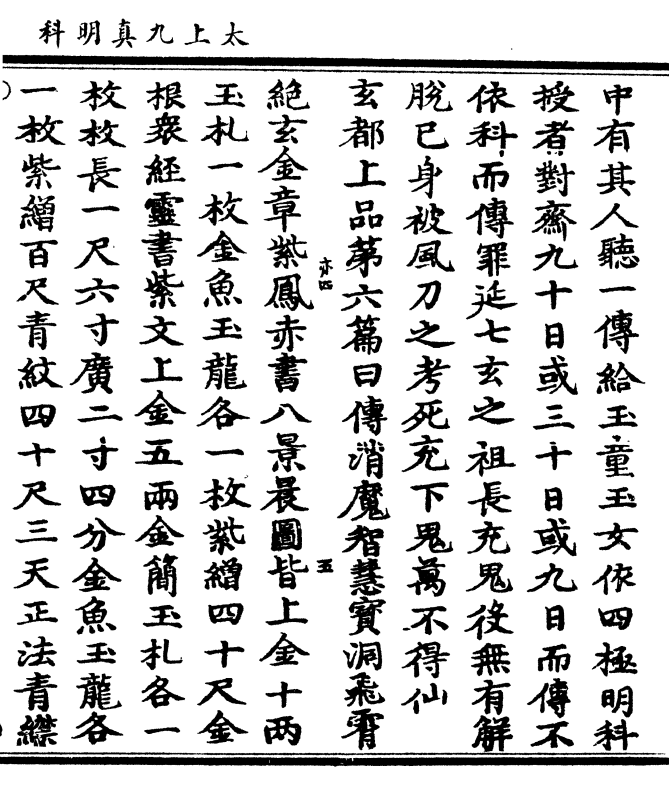 太上九真明科
中有其人聽一傳給玉童玉女依四極明科
授者對齋九十日或三十日或九日而傳不
依科而傳罪延七玄之祖長充鬼役無有解
脫已身被風刀之考死充下鬼萬不得仙
玄都上品第六篇曰傳消魔智慧寶洞飛霄
絕玄金章紫鳳赤書八景晨圖皆上金十两
玉札一枚金魚玉龍各一枚紫繒四十尺金
根衆經靈書紫文上金五兩金簡玉札各一
枚枚長一尺六寸廣二寸四分金魚玉龍各
一枚紫繒百尺青紋四十尺三天正法青襟
亦四
五